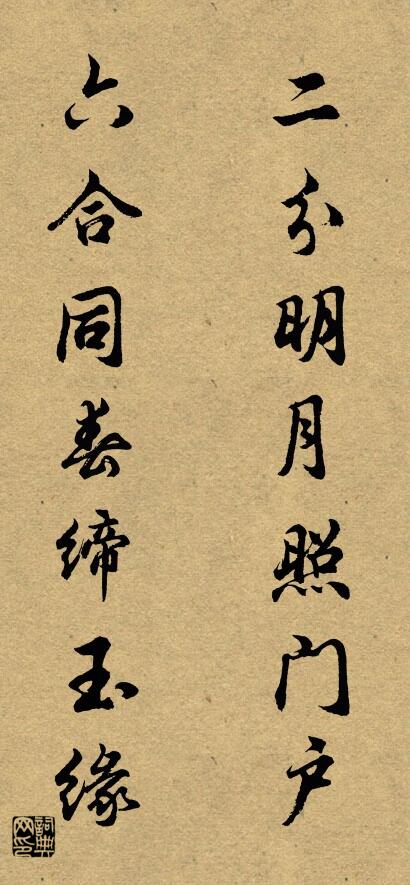 二分明月照门户
六合同春缔玉缘
词典网印